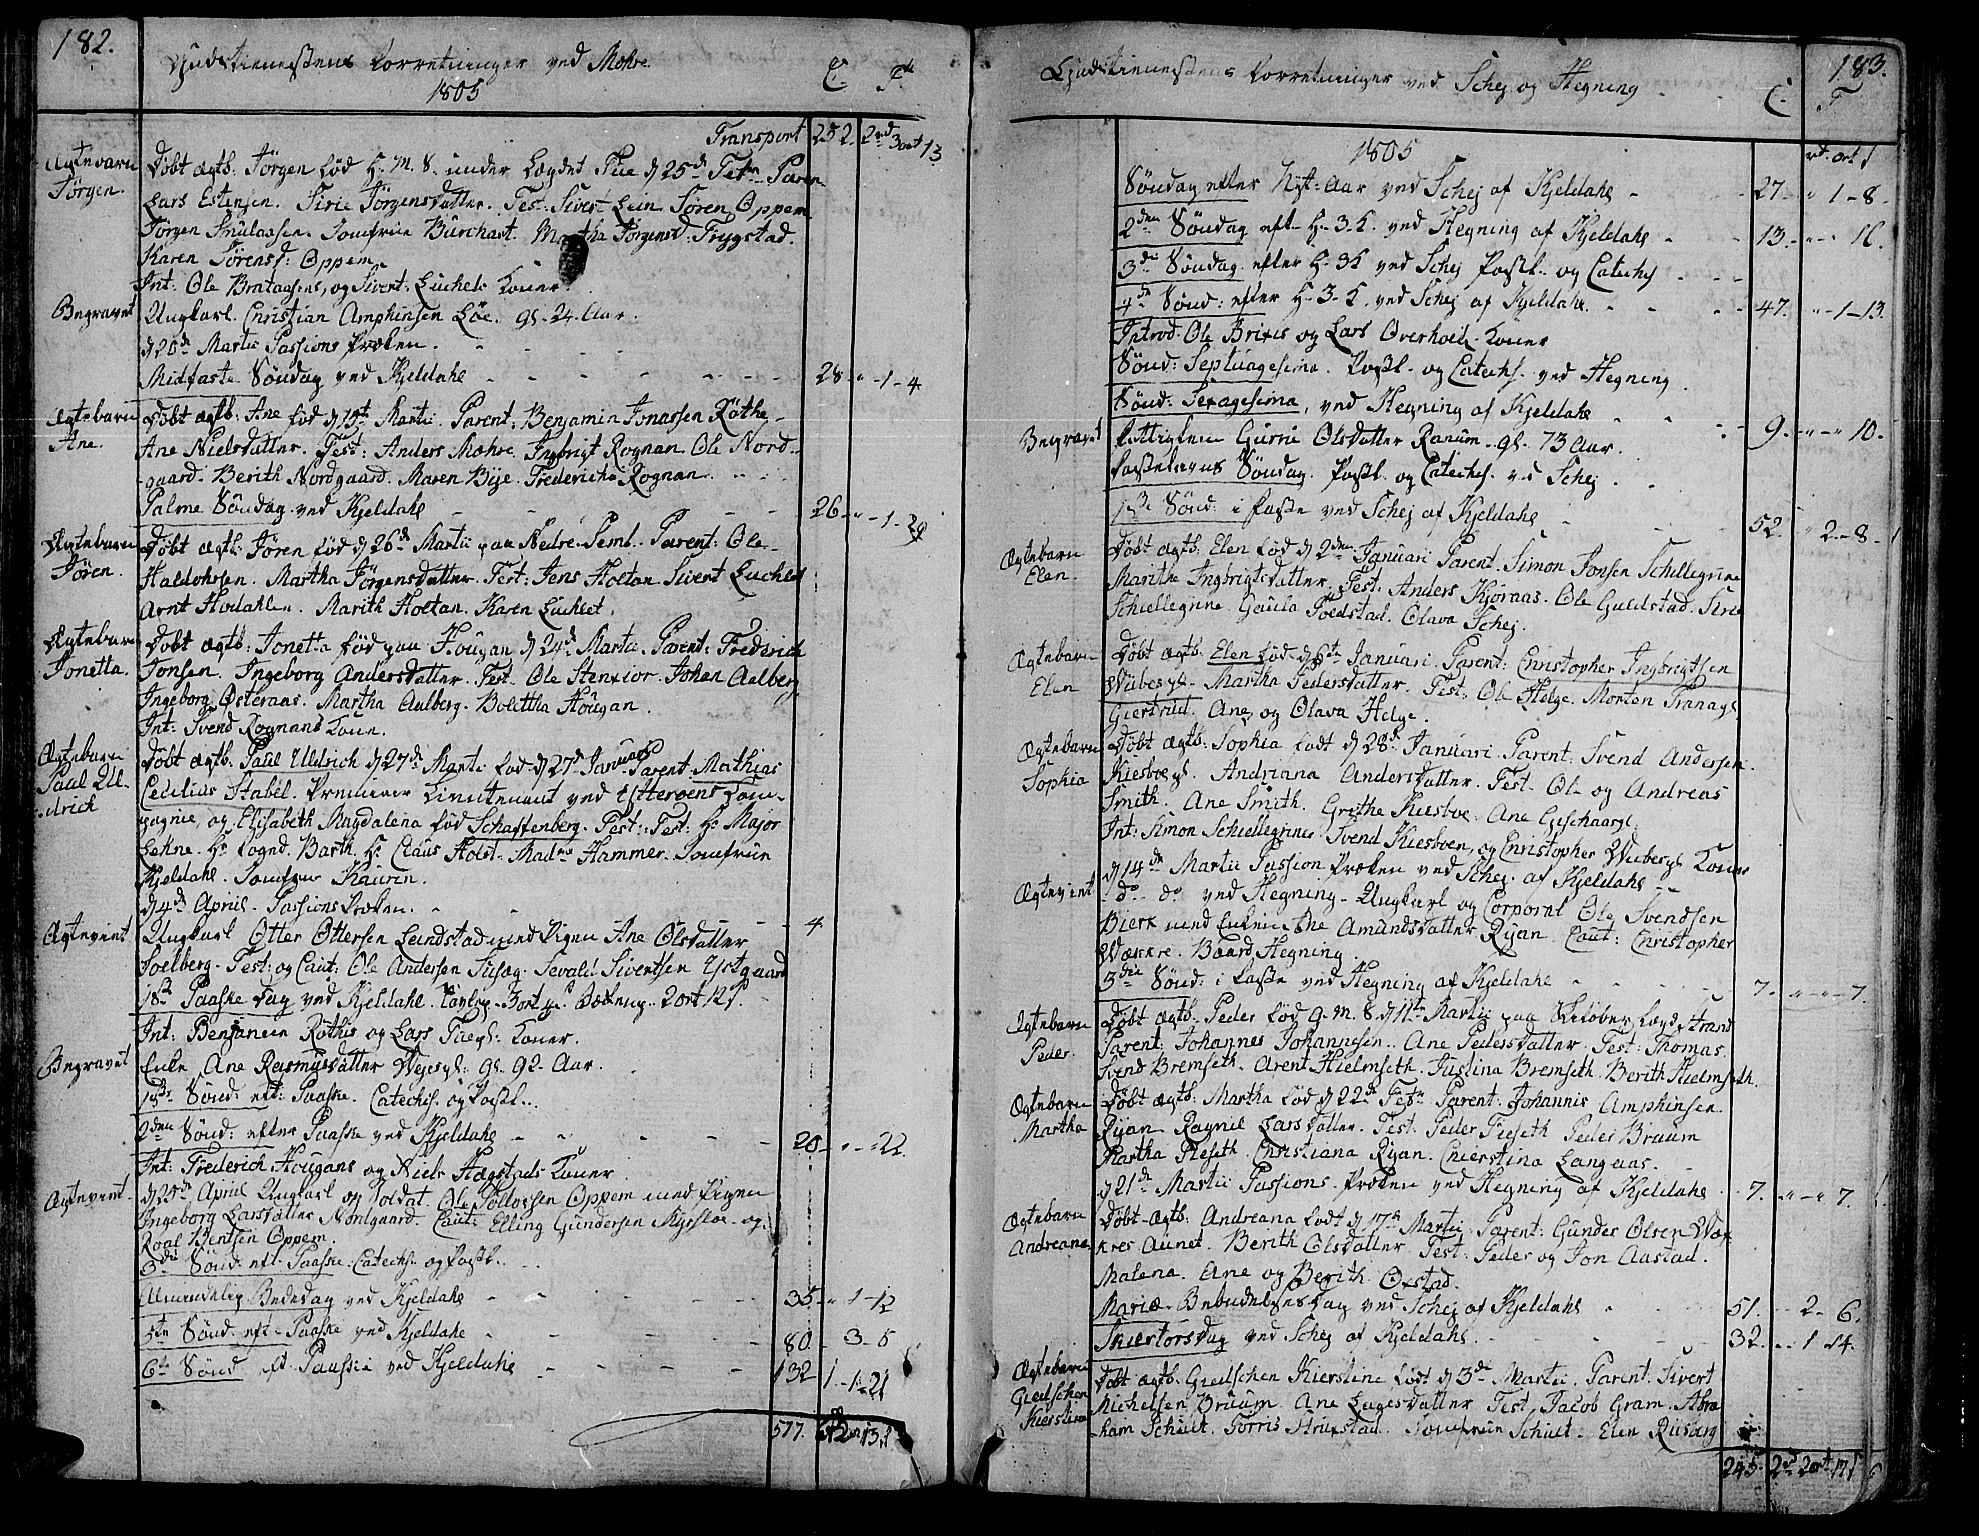 182.
Gudstienestens Forretninger ved Mæhre
1805
C. T.
Transport 252. 2rd 3ort 13
Ægtebarn Døbt ægtb. Jörgen fød H. M. S. under Lægdet Fue d 25de Febr. Paren.
Jörgen. Lars Estensen. Siri Jörgensdatter. Test: Sivert Lein Sören Oppem
Jörgen Snulaasen. Jomfrue Burchart. Martha Jörgensd: Trygstad.
Karen Sörensd: Oppem.
Int: Ole Brataasens, og Sivert Luchels Koner.
Begravet Ungkarl. Christian Amphinsen Löe. gl. 24. Aar.
d 20de Martii Passions Præken.
Midfaste Søndag ved Kjeldahl - - - 28 - " - 1 - 4
Ægtebarn Døbt ægtb: Ane fød d 15t Martii. Parent: Benjamin Jonassen Röthe
Ane. Ane Nielsdatter. Test: Anders Mæhre. Ingbrigt Rognan. Ole Nord-
gaard. Berith Nordgaard. Maren Bye. Fredericha Rognan.
Palme Søndag ved Kjeldahl - - - 26 - " - 1 - 29
Ægtebarn Døbt ægtb: Jören fød d 26de Martii paa Nedre Seml. Parent: Ole
Jören. Haldohrsen. Martha Jörgensdatter. Test: Jens Hoctan. Sivert Luchset
Arnt Hodahlen. Marith Hoctan. Karen Luchset.
Ægtebarn Døbt ægtb: Jonetta fød paa Hougan d 24de Martii. Parent: Frederich
Jonetta. Jonsen. Ingeborg Andersdatter. Test. Ole Stenxior. Johan Aalberg
Ingeborg Østeraas. Martha Aalberg. Bolettha Hougan.
Int: Svend Rognans Kone.
Ægtebarn Døbt ægtb: Paul Uldrich d 27de Martii fød d 27de Januari Parent Mathias
Paul Ul- Cecilius Stabel. Premieer Lieutenant ved Ytterøens Com-
drich pagnie, og Elisabeth Magdalena fød Schaftenberg. Test: Hr Major
Lehne. Hr Fogd. Barth. Hr Claus Holst. Madme Hammer. Jomfrue
Kjeldahl. Jomfrue Kaurin.
d 4de April - Passions Præken.
Ægteviet Ungkarl Otter Ottersen Lundstad med Pigen Ane Olsdatter - 4
Soelberg. Test: og Caut: Ole Andersen Susæg. Sevald Sivertsen Ystgaard
1ste Paaske Dag ved Kjeldahl.
Int: Benjamin Röthis og Lars Koner.
Begravet Enke Ane Rasmusdatter gl. 92. Aar.
1ste Sönd: eft: Paaske. Catechis. og Post.
2den Sönd: efter Paaske ved Kjeldahl - - - 20 - " - 22.
Int: Frederich Hougans og Niels Hægstads Koner.
Ægteviet d 25de April Ungkarl og Soldat. Ole Oppem med Pigen
Ingeborg Larsdatter Nordgaard. Caut: Elling Gundersen og
Roal Bentsen Oppem.
3die Sönd. eft. Paaske. Catechs. og Post.
Almindelig Bededag ved Kjeldahl - - - 35 - " 1 - 12
5te Sönd. eft - Paaske ved Kjeldahl - - - 80. - 3 - 5
6te Sönd eft. Paaske ved Kjeldahl - - - 132 1 - 1 - 21
577.
183.
Gudstienestens Forretninger ved Schej og Hegning
C. T.
1805 rd. ort ſ
Søndag efter Nyt-Aar ved Schej af Kjeldahl - 27. " 1 - 8.
2den Søndag eft. H. 3. K. ved Hegning af Kjeldahl - 13. - " - 16.
3die Søndag efter H. 3 K ved Schej Post. og Catechs
4de Sönd: efter H. 3. K. ved Schej af Kjeldahl. - 47. - " - 1 - 13.
Introd. Ole Brixes og Lars Overholts Koner
Sönd: Septuagesima. Post. og Catechs. ved Hegning.
Sönd: Sexagesima, ved Hegning af Kjeldahl - 9. - " - " 10.
Begravet Fattiglem Gurri Olsdatter Ranum. gl. 73 Aar.
Fastelavns Søndag. Post. og Catechs. ved Schej.
1ste Sönd: i Faste ved Schej af Kjeldahl - 52. " 2. - 8.
Ægtebarn Døbt ægtb: Elen fød d 2den Januari Parent. Simon Jonsen Schellegrine
Elen. Marithe Ingbrigtsdatter. Test. Anders Kjøraas. Ole Guldstad. Siri
Schiellegrine. Gaula Foldstad. Olava Schej.
Ægtebarn Døbt ægtb: Elen fød d 6te Januari. Parent: Christopher Ingbrigtsen
Elen Wiibesgl. Martha Pedersdatter. Test: Ole Helge. Morten Tranagl.
Giertrud. Ane og Olava Helge.
Ægtebarn Døbt ægtb: Sophia født d 28de Januari. Parent. Svend Andersen
Sophia Kiesboegl. Andriana Andersdatter. Test. Ole og Andreas
Smith. Ane Smith. Grethe Kiesboe. Ane
Int: Simon Schiellegrines Svend Kiesboen, og Christopher Wiibergl. Koner
d 14de Martii Passion Præken ved Schej af Kjeldahl -
Ægteviet - do. do ved Hegning - Ungkarl og Corporal Ole Svendsen
Bierk med Enken Ane Amundsdatter Ryan. Caut: Christopher
Wækre. Baard Hegning.
3die Sönd: i Faste ved Hegning af Kjeldahl - 7. " - " - 7.
Ægtebarn Døbt ægtb: Peder fød d 11te Martii paa Strand
Peder. Parent: Johannes Johannesen. Ane Pedersdatter. Test: Thomas
Svend Bremseth. Arent Hielmseth. Justina Bremseth. Berith Hielmseth.
Ægtebarn Døbt ægtb: Martha fød d 22de Febr Parent. Johannis Amphinsen
Martha Ryan. Ragnil Larsdatter. Test. Peder Fieseth Peder Bruum
Martha Fieseth. Christiana Ryan. Chierstina Langaas.
d 21de Martii Passions Præken ved Hegning af Kjeldahl - 7. " - " 7.
Ægtebarn Døbt ægtb: Andreana født d 17de Martii. Parent: Gunder Olsen Wæ-
Andreane. kres Aunet. Berith Olsdatter. Test: Peder og Jon Aastad.
Malena. Ane og Berith Oxstad.
Mariæ Bebudelses Dag ved Schej af Kjeldahl - 51. - 2 - 6.
Skiertorsdag ved Schej af Kjeldahl. - 32. - 1 14.
Ægtebarn Døbt ægtb: Giedschen Kierstine født d 3de Martii. Parent. Sivert
Giedschen Michelsen Bruum. Ane Lagesdatter Test. Jacob Gram. Abra-
Kierstine ham Schult. Torris Jomfrue Schult. Elen Riisberg
245. 2rd 2ort 17ſ